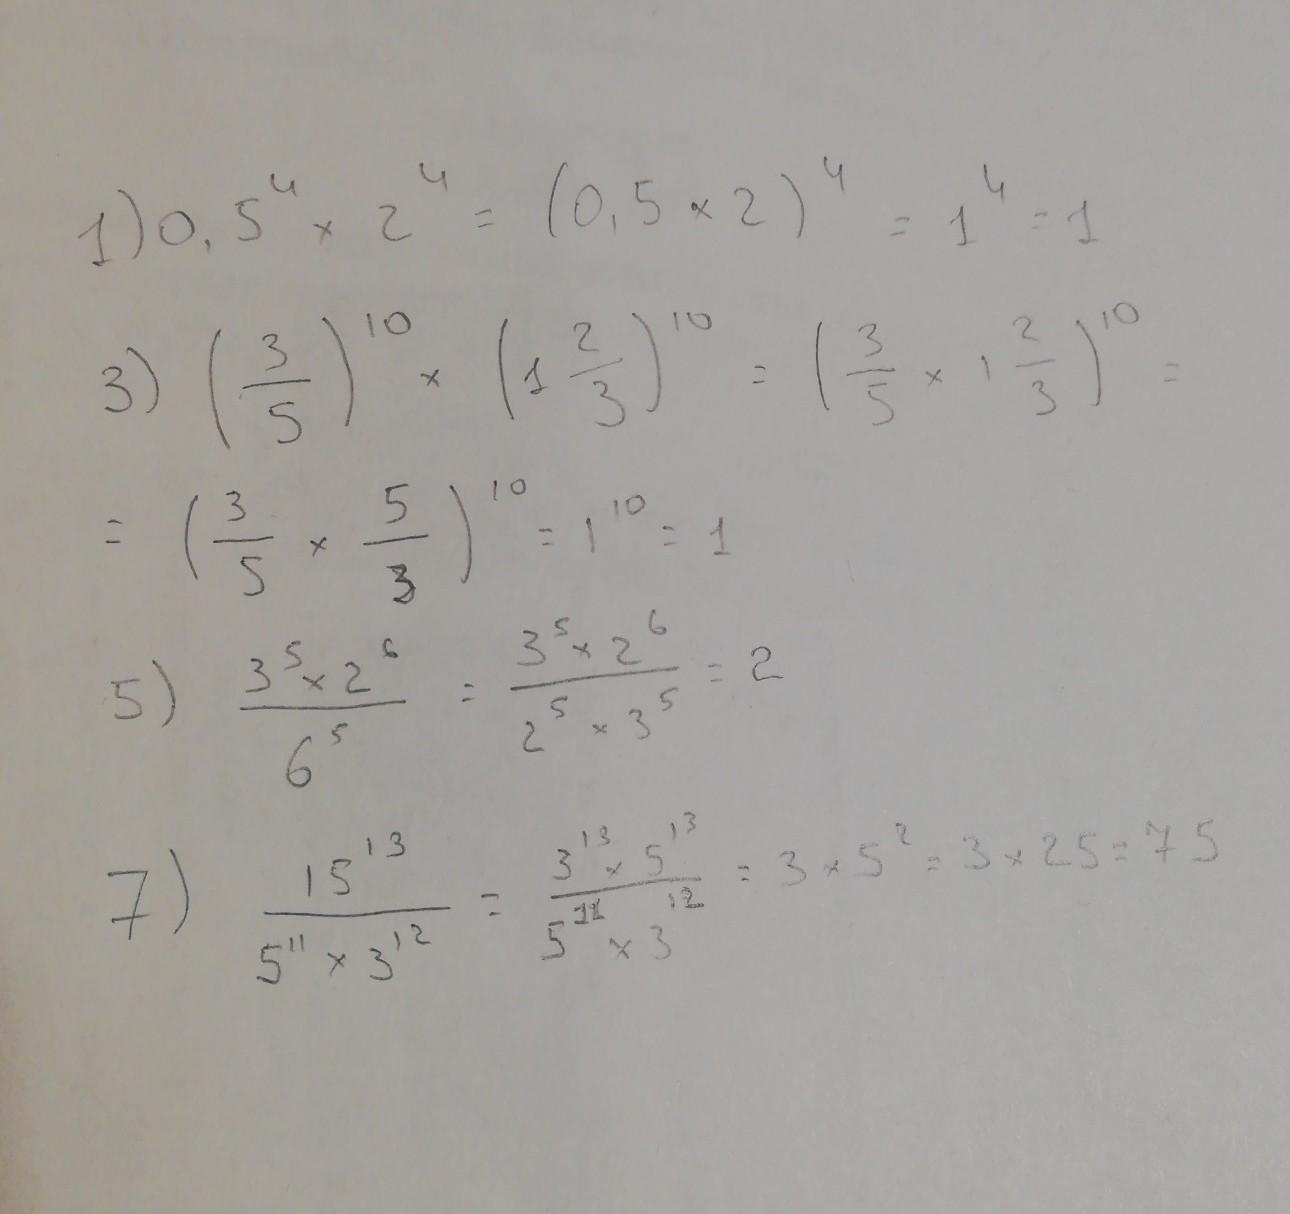 1) 0,5⁴ × 2⁴ = (0,5 × 2)⁴ = 1⁴ = 1
3) (3/5)¹⁰ × (1 2/3)¹⁰ = (3/5 × 1 2/3)¹⁰ =
= (3/5 × 5/3)¹⁰ = 1¹⁰ = 1
5) (3⁵ × 2⁶)/6⁵ = (3⁵ × 2⁶)/(2⁵ × 3⁵) = 2
7) 15¹³/(5¹¹ × 3¹²) = (3¹³ × 5¹³)/(5¹¹ × 3¹²) = 3 × 5² = 3 × 25 = 75